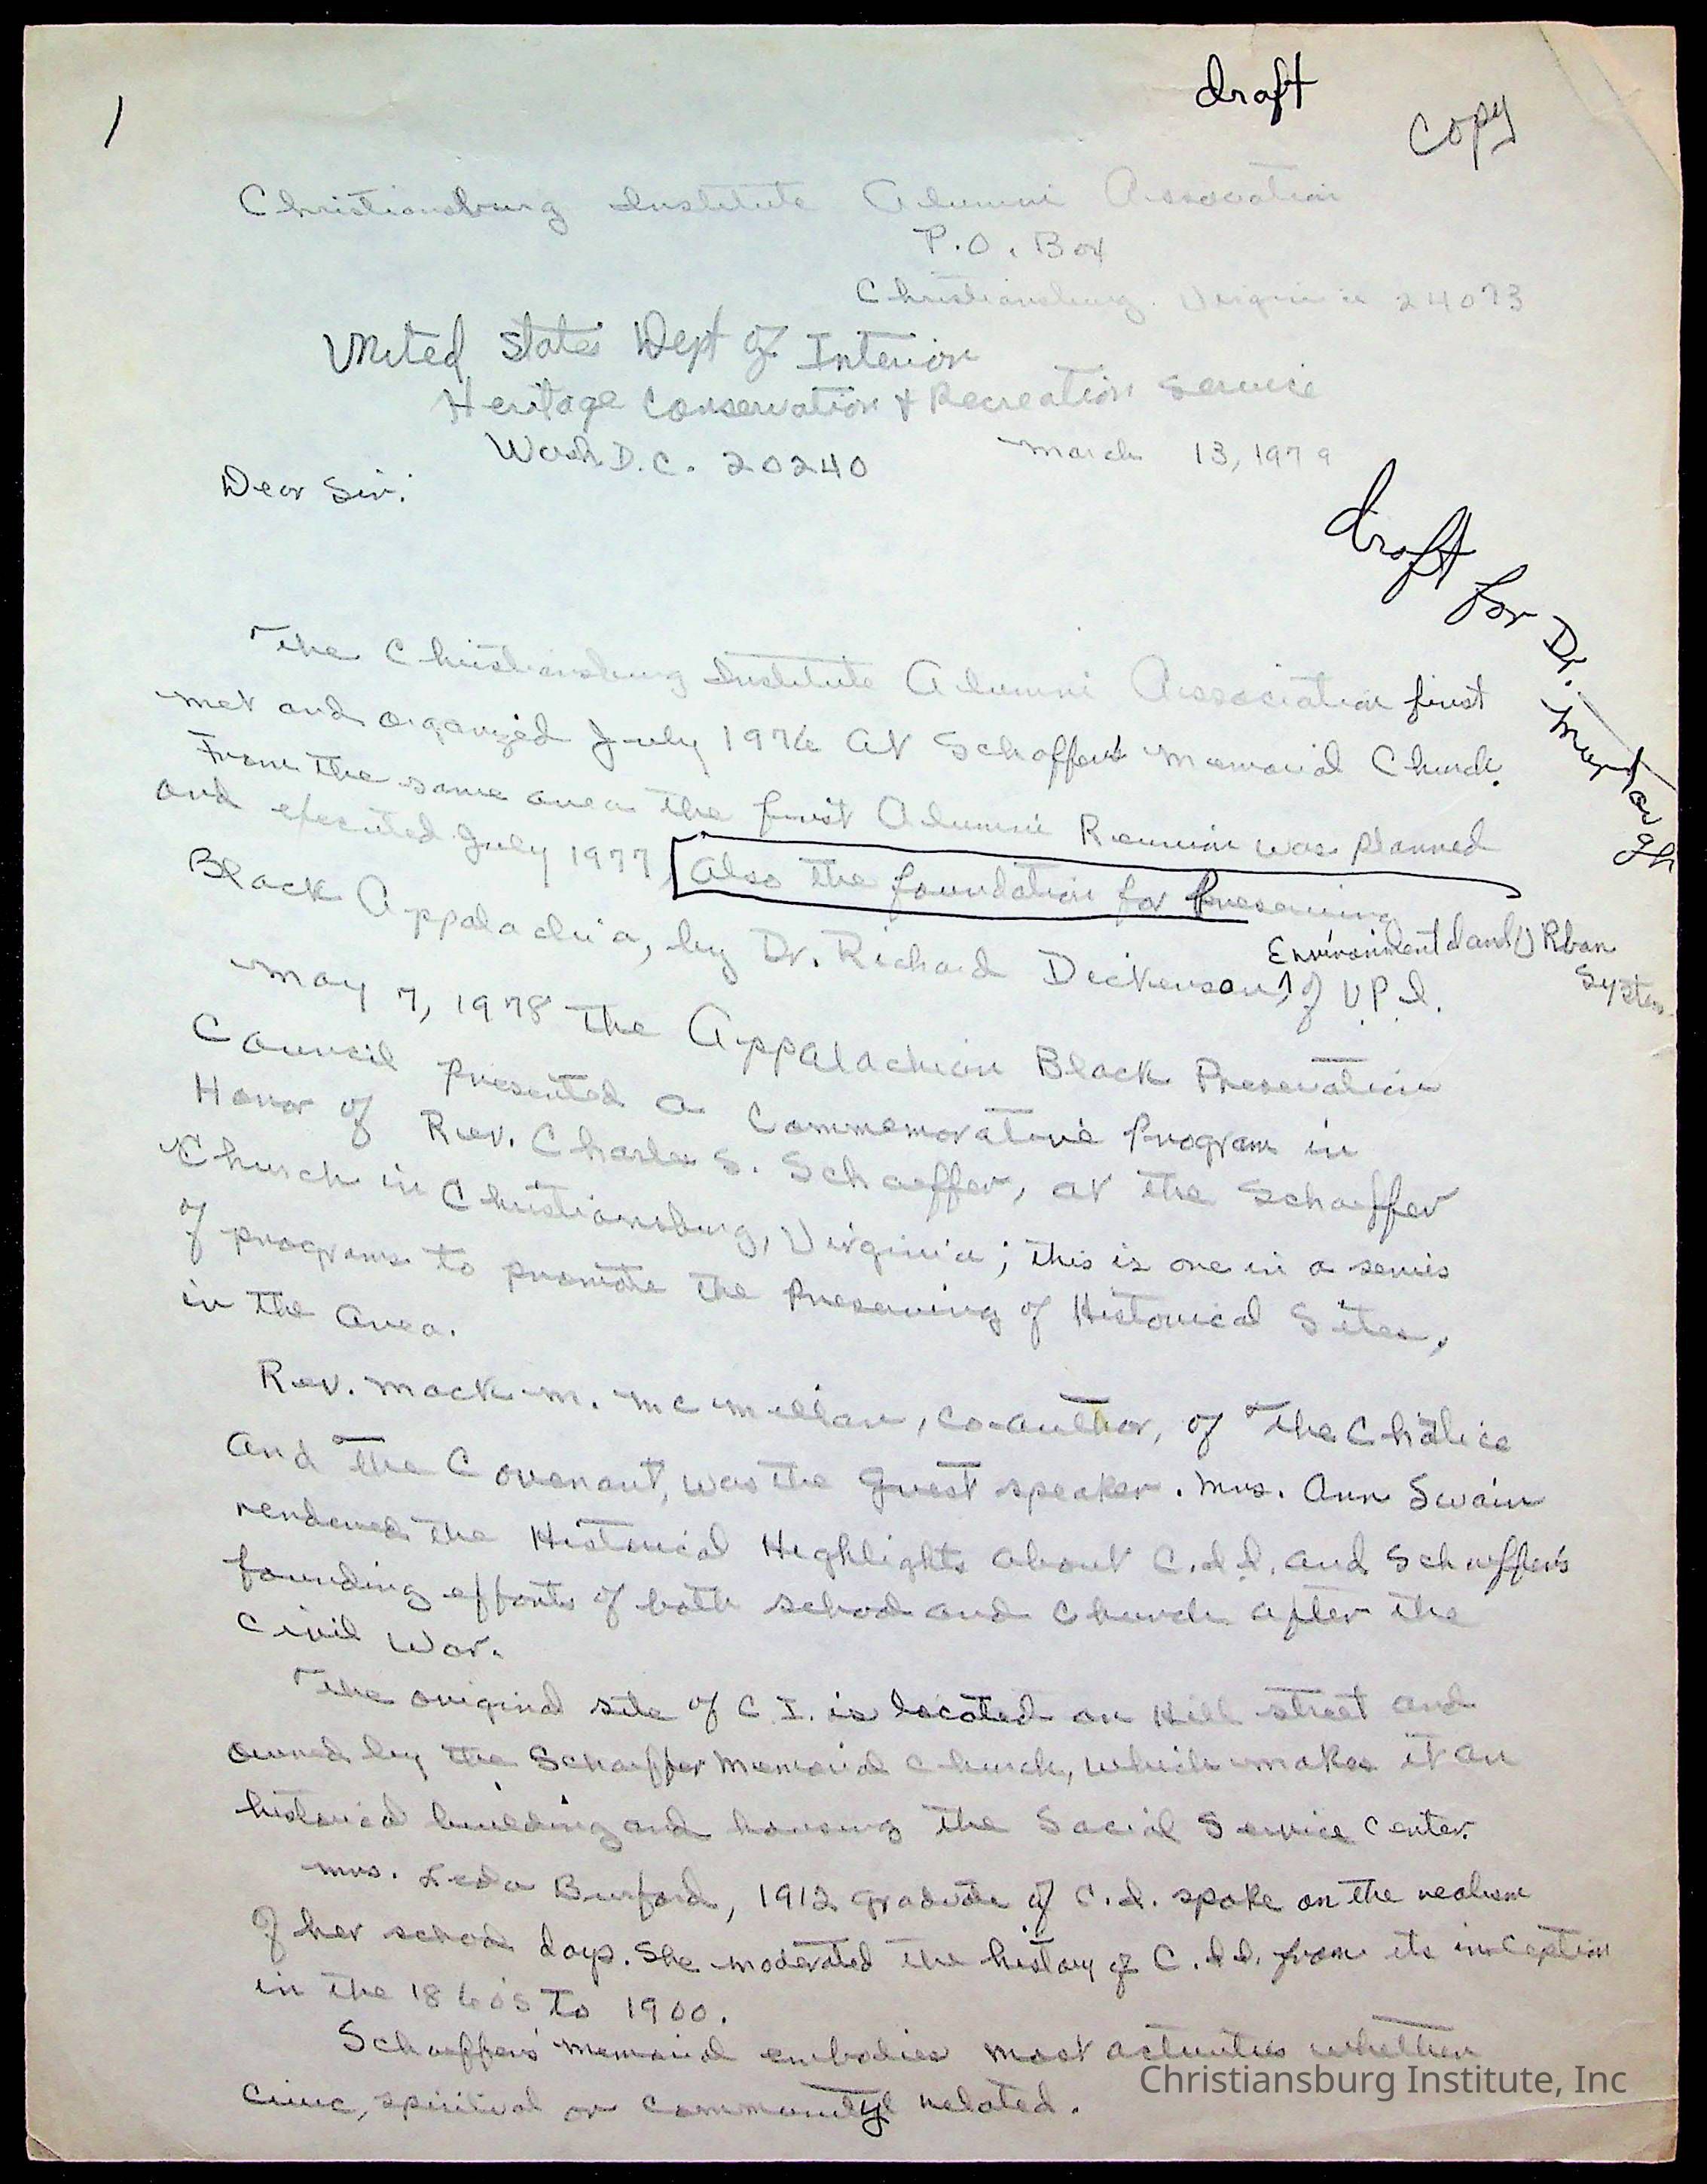 1
draft
copy
Christiansburg Institute Alumni Association
P.O. Box
Christiansburg. Virginia 24073
United States Dept of Interior
Heritage Conservation & Recreation Service
Wash D.C. 20240
March 13, 1979
Dear Sir:
draft for Dr.
The Christiansburg Institute Alumni Association first
met and organized July 1976 at Schaffer's Memorial Church.
From the same area the first Alumni Reunion was planned
and executed July 1977. Also the foundation for Preserving
Black Appalachia, by Dr. Richard Dickenson, of V.P.I.
Environmental and Urban
System
May 7, 1978 the Appalachian Black Preservation
Council presented a Commemorative Program in
Honor of Rev. Charles S. Schaeffer, at the Schaeffer
Church in Christiansburg, Virginia; this is one in a series
of programs to promote the Preserving of Historical Sites,
in the area.
Rev. Mack M. McMillan, co-author, of The Chalice
And The Covenant, was the guest speaker. Mrs. Ann Swain
rendered the Historical Highlights about C.I.I. and Schaeffer's
founding efforts of both school and church after the
Civil War.
The original site of C.I. is located on Hill street and
owned by the Schaeffer Memorial Church, which makes it an
historical building and housing the Social Service Center.
Mrs. Leda Burford, 1912 graduate of C.I. spoke on the realism
of her school days. She moderated the history of C.I.I. from its inception
in the 1860's to 1900.
Schaeffer's Memorial embodies most activities whether
civic, spiritual or community related.
Christiansburg Institute, Inc